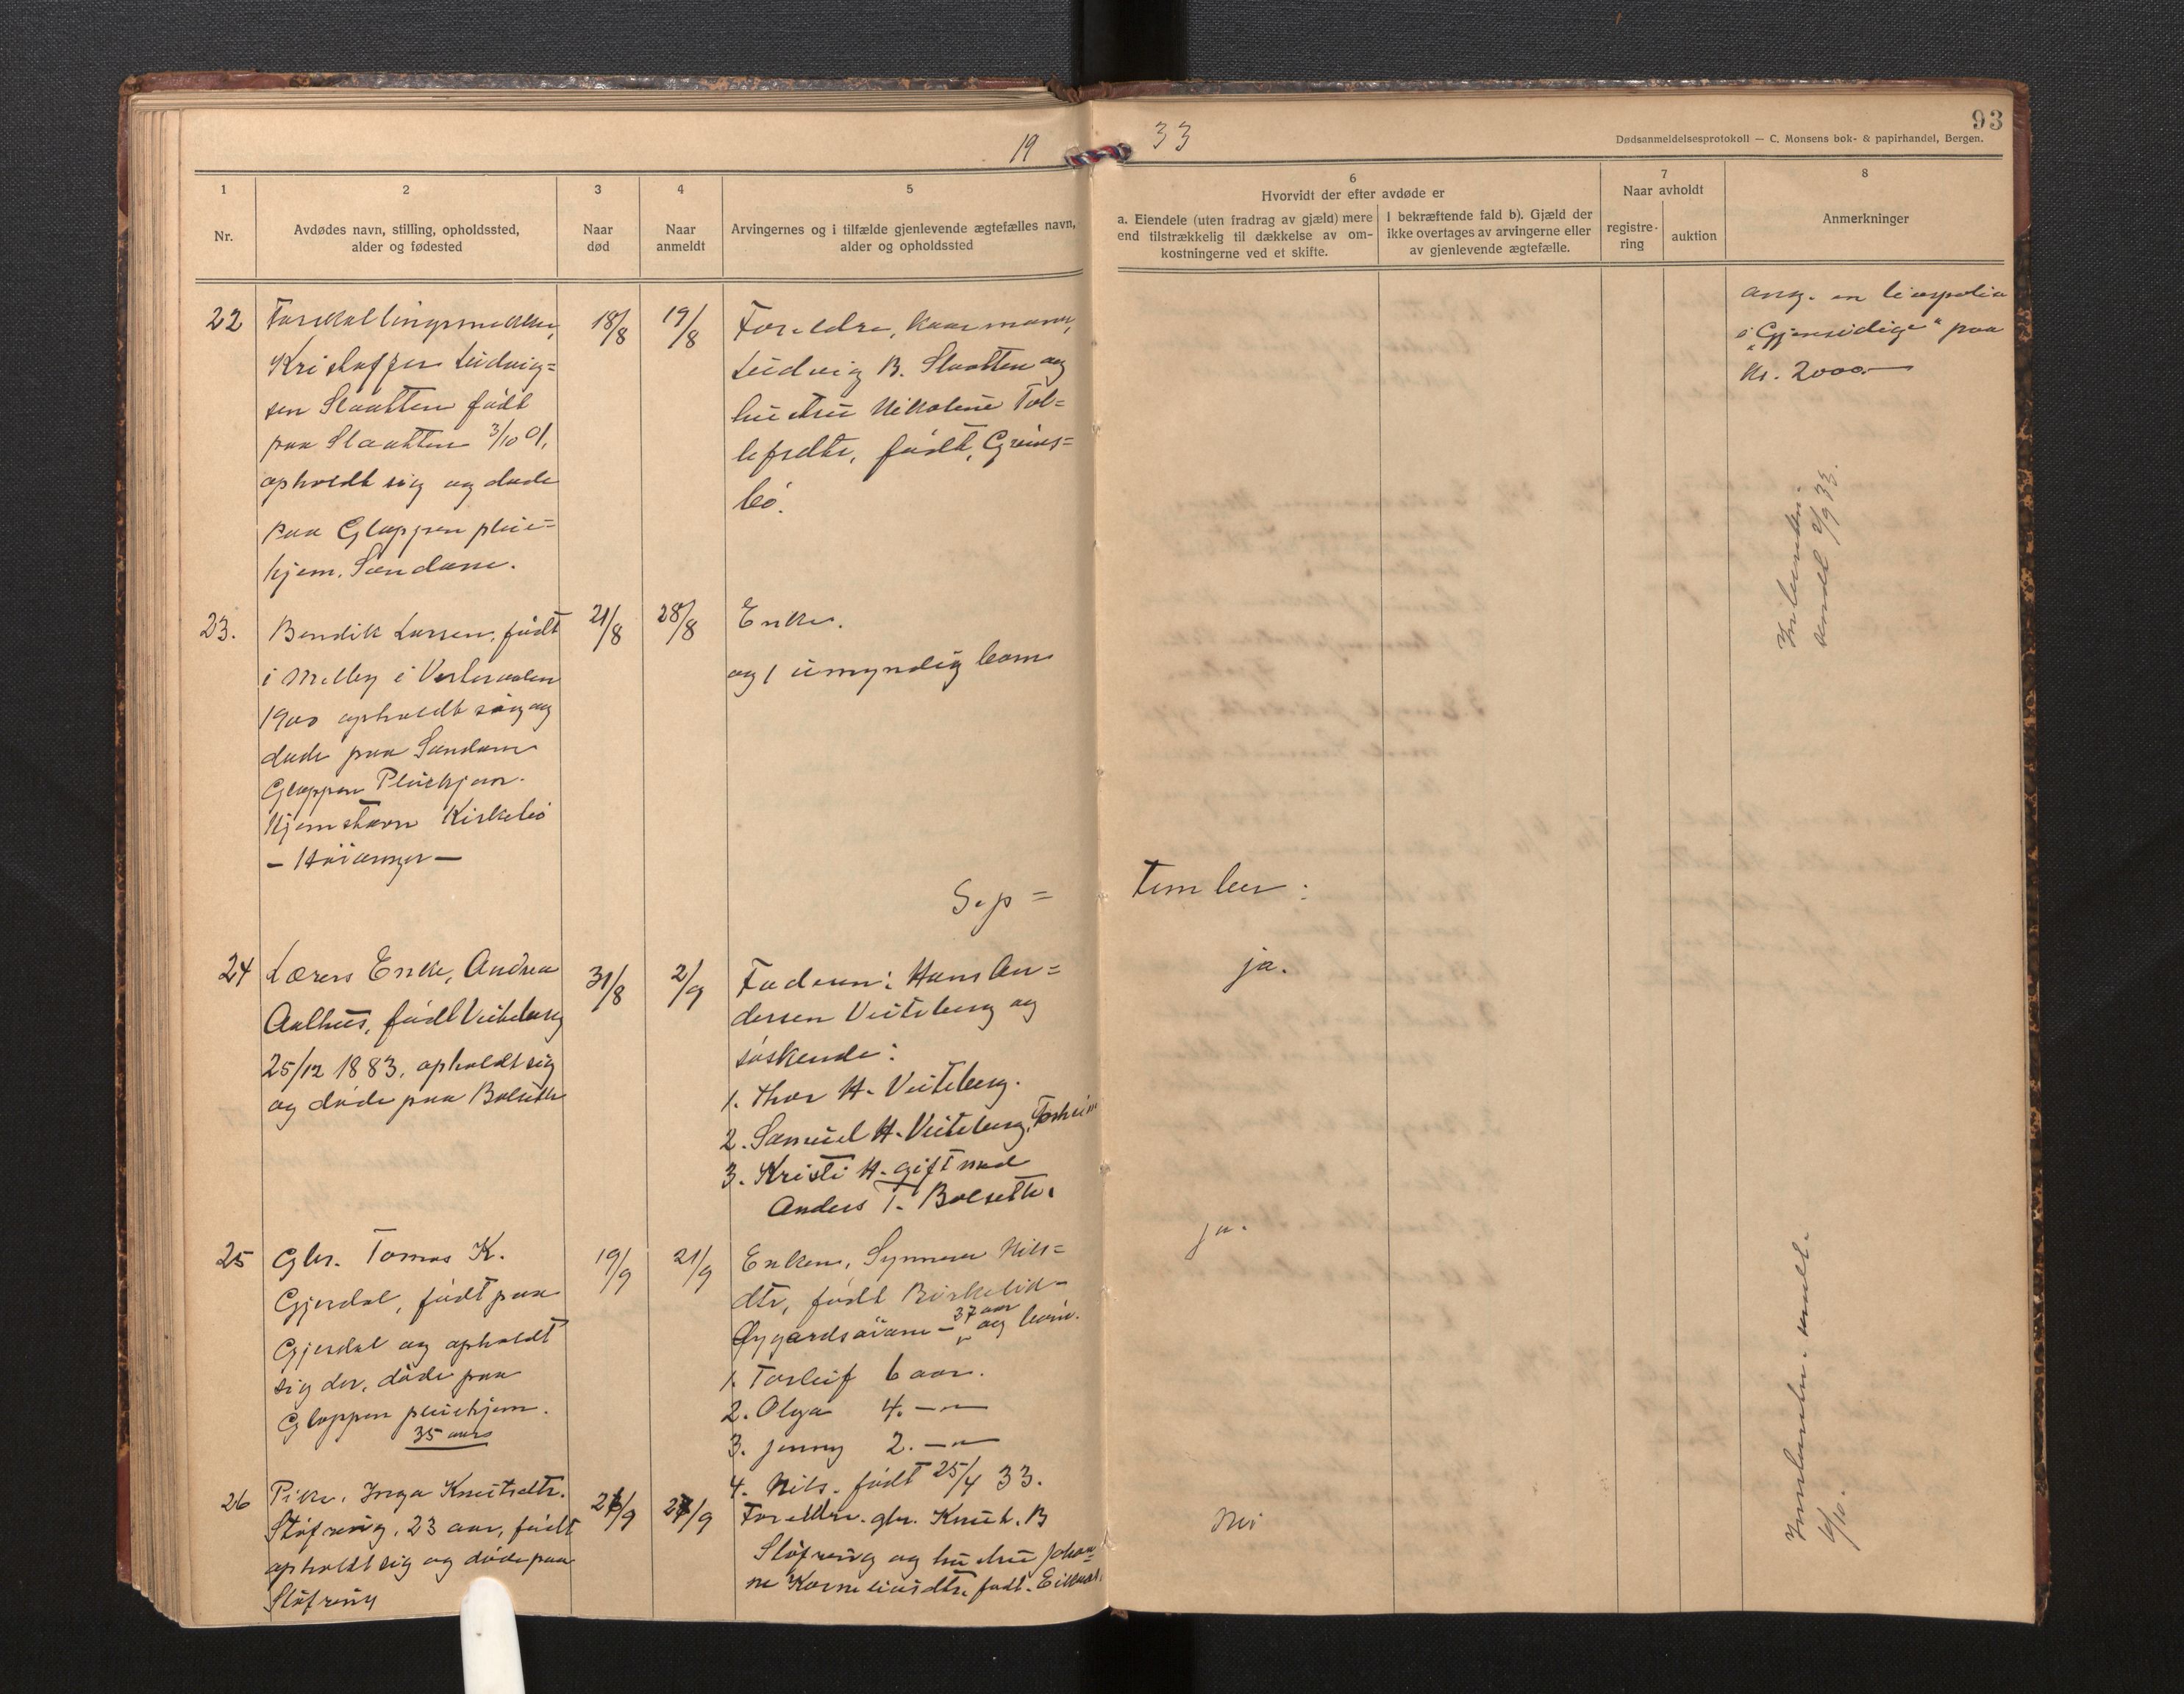 93
19 33
Dødsanmeldelsesprotokoll — C. Monsens bok- & papirhandel, Bergen.
1
Nr.
2
Avdødes navn, stilling, opholdssted,
alder og fødested
3
Naar
død
4
Naar
anmeldt
5
Arvingernes og i tilfælde gjenlevende ægtefælles navn,
alder og opholdssted
6
Hvorvidt der efter avdøde er
a. Eiendele (uten fradrag av gjæld) mere
end tilstrækkelig til dækkelse av om-
kostningerne ved et skifte.
I bekræftende fald b). Gjæld der
ikke overtages av arvingerne eller
av gjenlevende ægtefælle.
7
Naar avholdt
registre-
ring
auktion
8
Anmerkninger
22
Kristoffer Ludvig=
sen Slaatten født
paa Slaatten 3/10 01,
opholdt sig og døde
paa Gloppen pleie=
hjem, Sandane.
18/8
19/8
Foreldre,
Ludvig B. Slaatten og
hustru Nikoline Tol=
lefsdtr, født, Grims=
bø.
ang. en livspolice
i "Gjensidige" paa
kr. 2000.—
sendt 2/9 33.
23.
Bendik Larsen, født
i Melby i Vesteraalen
1900 opholdt sig og
døde paa Sandane
Gloppen Pleiehjem.
Hjemstavn Kirkebø
— Høianger —
21/8
28/8
Enke.
og 1 umyndig barn
Sep = tember :
24
Lærers Enke, Andrea
Aalhus, født Veiteberg
25/12 1883, opholdt sig
og døde paa Bolsette
31/8
2/9
Faderen: Hans An=
dersen Veiteberg og
søskende:
1. Thor H. Veiteberg.
2. Samuel H. Veiteberg, Forheim
3. Kristi H. gift med
Anders T. Bolsette.
ja.
25
Gbr. Tomas K.
Gjerdal, født paa
Gjerdal og opholdt
sig der, døde paa
Gloppen pleiehjem.
35 aar
19/9
21/9
Enken, Synneva Nils=
dtr, født Birkelid-
Øygardsøiane — 37 aar og børn.
1. Torleif 6 aar.
2. Olga 4. —"—
3. Jenny 2. —"—
4. Nils. født 25/4 33.
ja.
sendt.
6/10.
26
Pike, Inga Knutsdtr.
Støfring, 23 aar, født
opholdt sig og døde paa
Støfring
/9
/9
Foreldre. gbr. Knut. B
Støfring og hustru Johan=
ne Korneliusdtr, født.
Nei